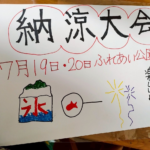 納涼大会
7月19日・20日ふれあい公園
氷